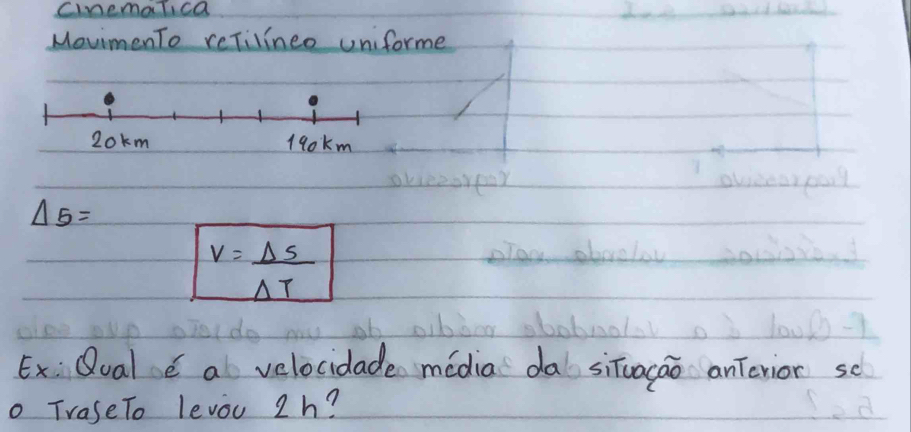 Cinematica
Movimento retilíneo uniforme
20km 190km
Δs=
V = ΔS
ΔT
Ex: Qual é a velocidade média da situação anterior se
o Trajeto levou 2h?